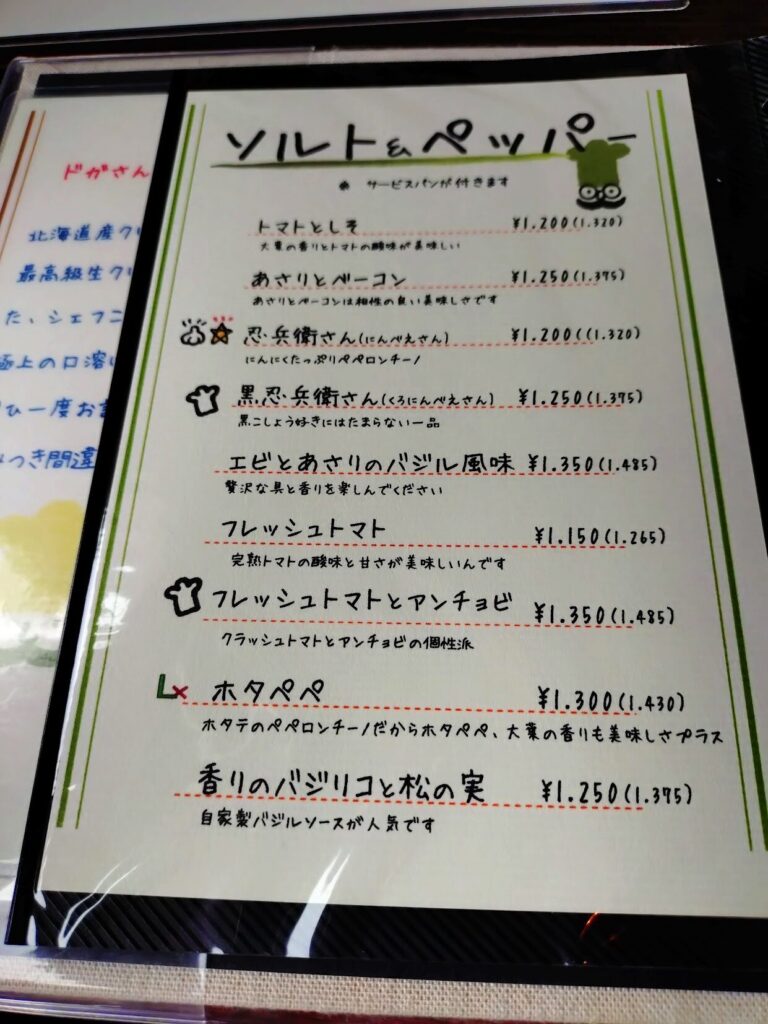 ドガさん
北海道産クリ
最高級生クリ
た、シェフニ
極上の口溶け
ひ一度お
つき間違
ソルト&ペッパー
サービスパンが付きます
トマトとしそ ¥1.200(1.320)
大葉の香りとトマトの酸味が美味しい
あさりとベーコン ¥1.250(1.375)
あさりとベーコンは相性の良い美味しさです
忍兵衛さん(にんべえさん) ¥1.200((1.320)
にんにくたっぷりペペロンチーノ
黒忍兵衛さん(くろにんべえさん) ¥1.250(1.375)
黒こしょう好きにはたまらない一品
エビとあさりのバジル風味 ¥1.350(1.485)
贅沢な具と香りを楽しんでください
フレッシュトマト ¥1.150(1.265)
完熟トマトの酸味と甘さが美味しいんです
フレッシュトマトとアンチョビ ¥1.350(1.485)
クラッシュトマトとアンチョビの個性派
Lx ホタペペ ¥1.300(1.430)
ホタテのペペロンチーノだからホタペペ、大葉の香りも美味しさプラス
香りのバジリコと松の実 ¥1.250(1.375)
自家製バジルソースが人気です